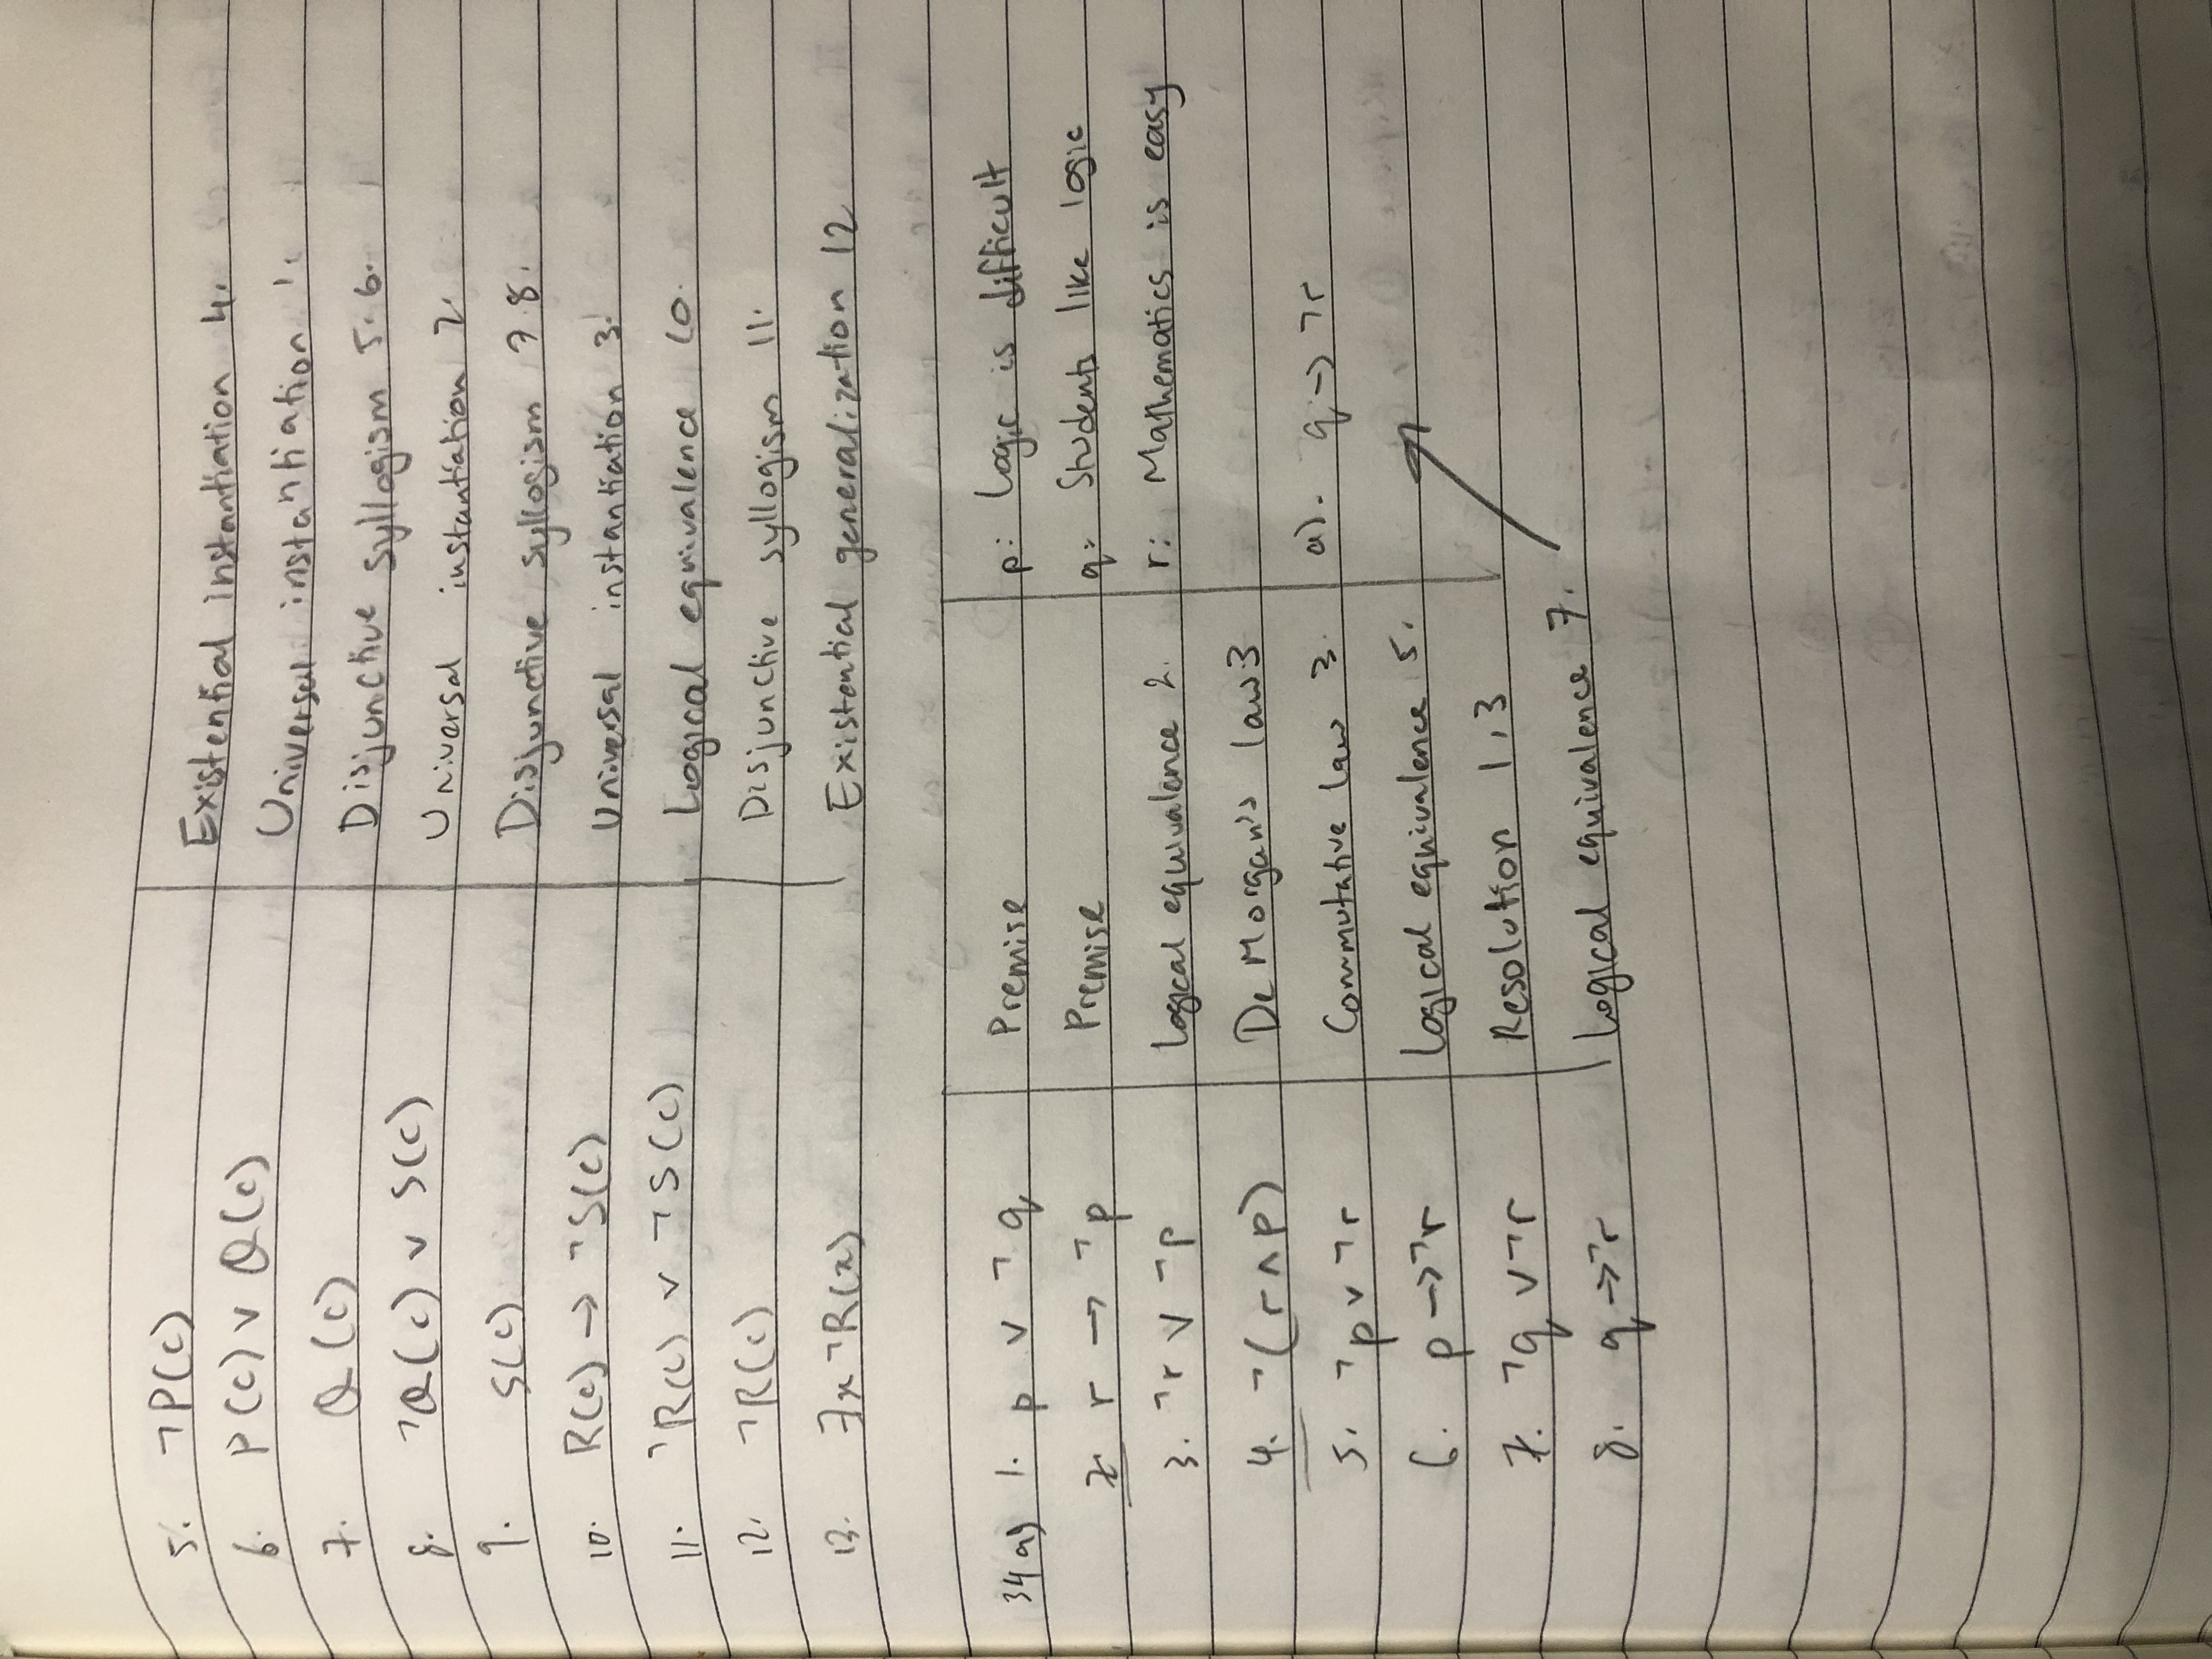 5. ¬P(c) Existential instantiation 4.
6. P(c) ∨ Q(c) Universal instantiation 1.
7. Q(c) Disjunctive syllogism 5. 6.
8. ¬Q(c) ∨ S(c) Universal instantiation 2.
9. S(c) Disjunctive syllogism 7 8.
10. R(c) → ¬S(c) Universal instantiation 3.
11. ¬R(c) ∨ ¬S(c) Logical equivalence 10.
12. ¬R(c) Disjunctive syllogism 11.
13. ∃x ¬R(x) Existential generalization 12
34 a) 1. p ∨ ¬q Premise p: Logic is difficult
2. r → ¬p Premise q: Students like logic
3. ¬r ∨ ¬p Logical equivalence 2. r: Mathematics is easy
4. ¬(r ∧ p) De Morgan's law 3
5. ¬p ∨ ¬r Commutative law 3. a). q → ¬r
6. p → ¬r Logical equivalence 5.
7. ¬q ∨ ¬r Resolution 1, 3
8. q → ¬r Logical equivalence 7.